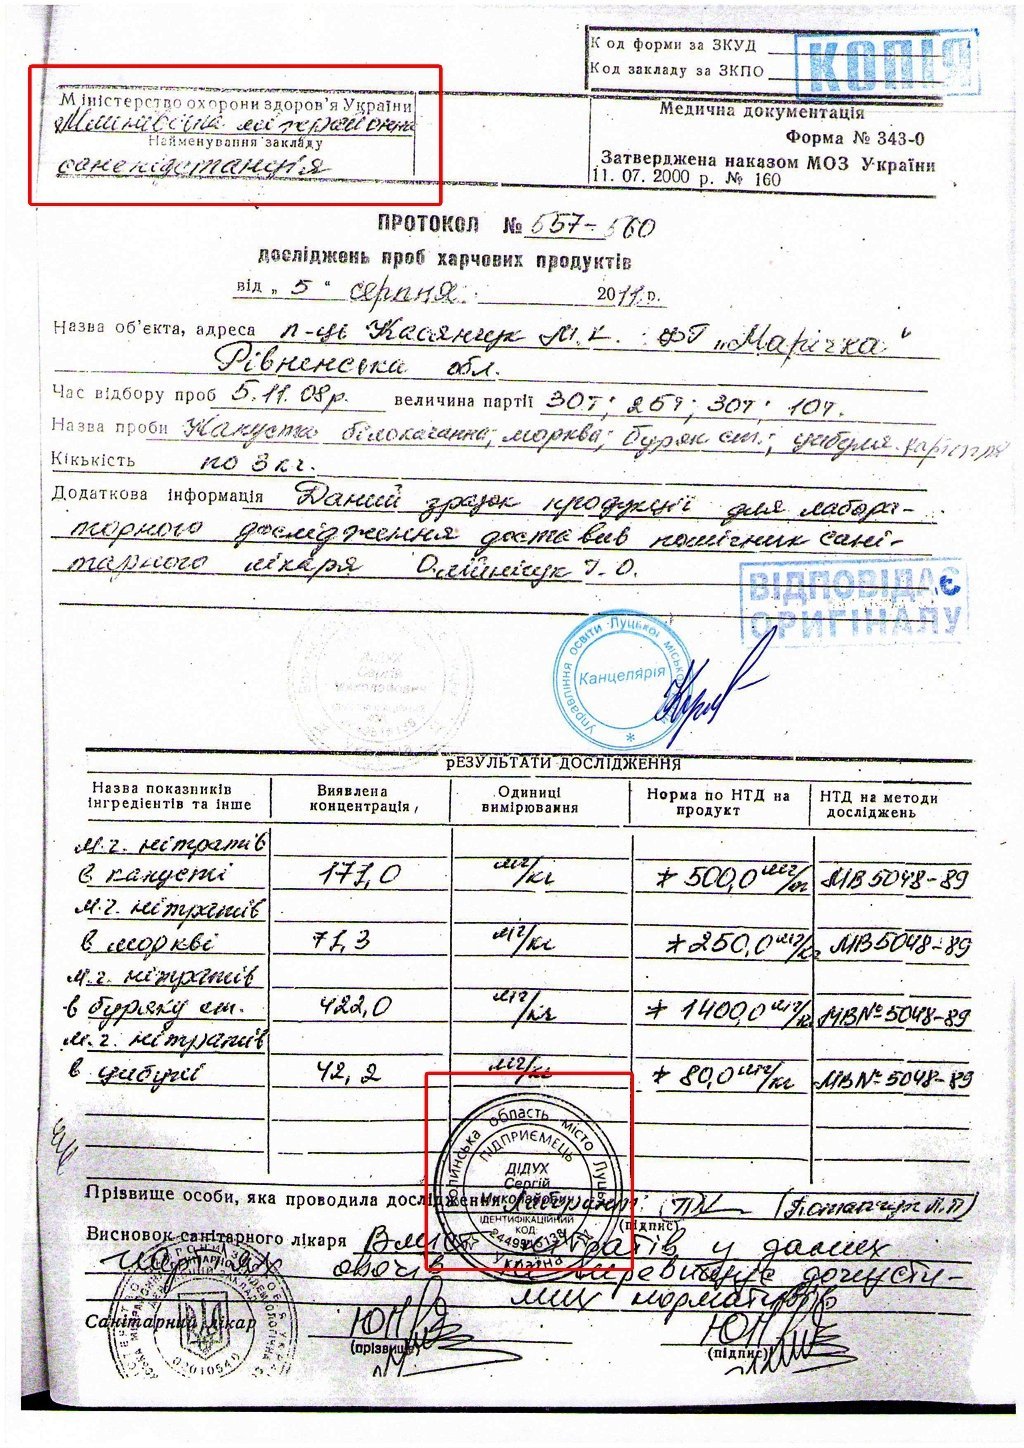 Код форми за ЗКУД
Код закладу за ЗКПО
КОПІЯ
Міністерство охорони здоров'я України
Млинівська міжрайонна
Найменування закладу
санепідстанція
Медична документація
Форма № 343-0
Затверджена наказом МОЗ України
11. 07. 2000 р. № 160
ПРОТОКОЛ № 557-560
досліджень проб харчових продуктів
від „ 5 " серпня 2011 р.
Назва об'єкта, адреса п-ць Касянчук М.К. ФГ „Марічка"
Рівненська обл.
Час відбору проб 5.11.08р. величина партії 30т; 25т; 30т; 10т.
Назва проби Капуста білокачанна; морква; буряк ст.; цибуля
Кікькість по 3 кг.
Додаткова інформація Даний зразок продукції для лабора-
торного дослідження доставив помічник сані-
тарного лікаря Олійнічук І.О.
ВІДПОВІДАЄ
ОРИГІНАЛУ
Управління освіти Луцької місько
Канцелярія
рЕЗУЛЬТАТИ ДОСЛІДЖЕННЯ
Назва показників інгредієнтів та інше
Виявлена концентрація,
Одиниці вимірювання
Норма по НТД на продукт
НТД на методи досліджень
м.ч. нітратів
в капусті 171,0 мг/кг * 500,0 мг/кг МВ 5048-89
м.ч. нітратів
в моркві 71,3 мг/кг * 250,0 мг/кг МВ 5048-89
м.ч. нітратів
в буряку ст. 422,0 мг/кг * 1400,0 мг/к МВ№ 5048-89
м.ч. нітратів
в цибулі 42,2 мг/кг * 80,0 мг/кг МВ№ 5048-89
олинська область місто Луць
ПІДПРИЄМЕЦЬ
ДІДУХ
Сергій
Миколайович
ІДЕНТИФІКАЦІЙНИЙ
КОД
Україна
Прізвище особи, яка проводила дослідження лаборант: (Потапчук Л.П)
(підпис)
Висновок санітарного лікаря Вміст нітратів у даних
овочів не перевищує допусти-
мих нормативів
Санітарний лікар
(прізвище)
(підпис)